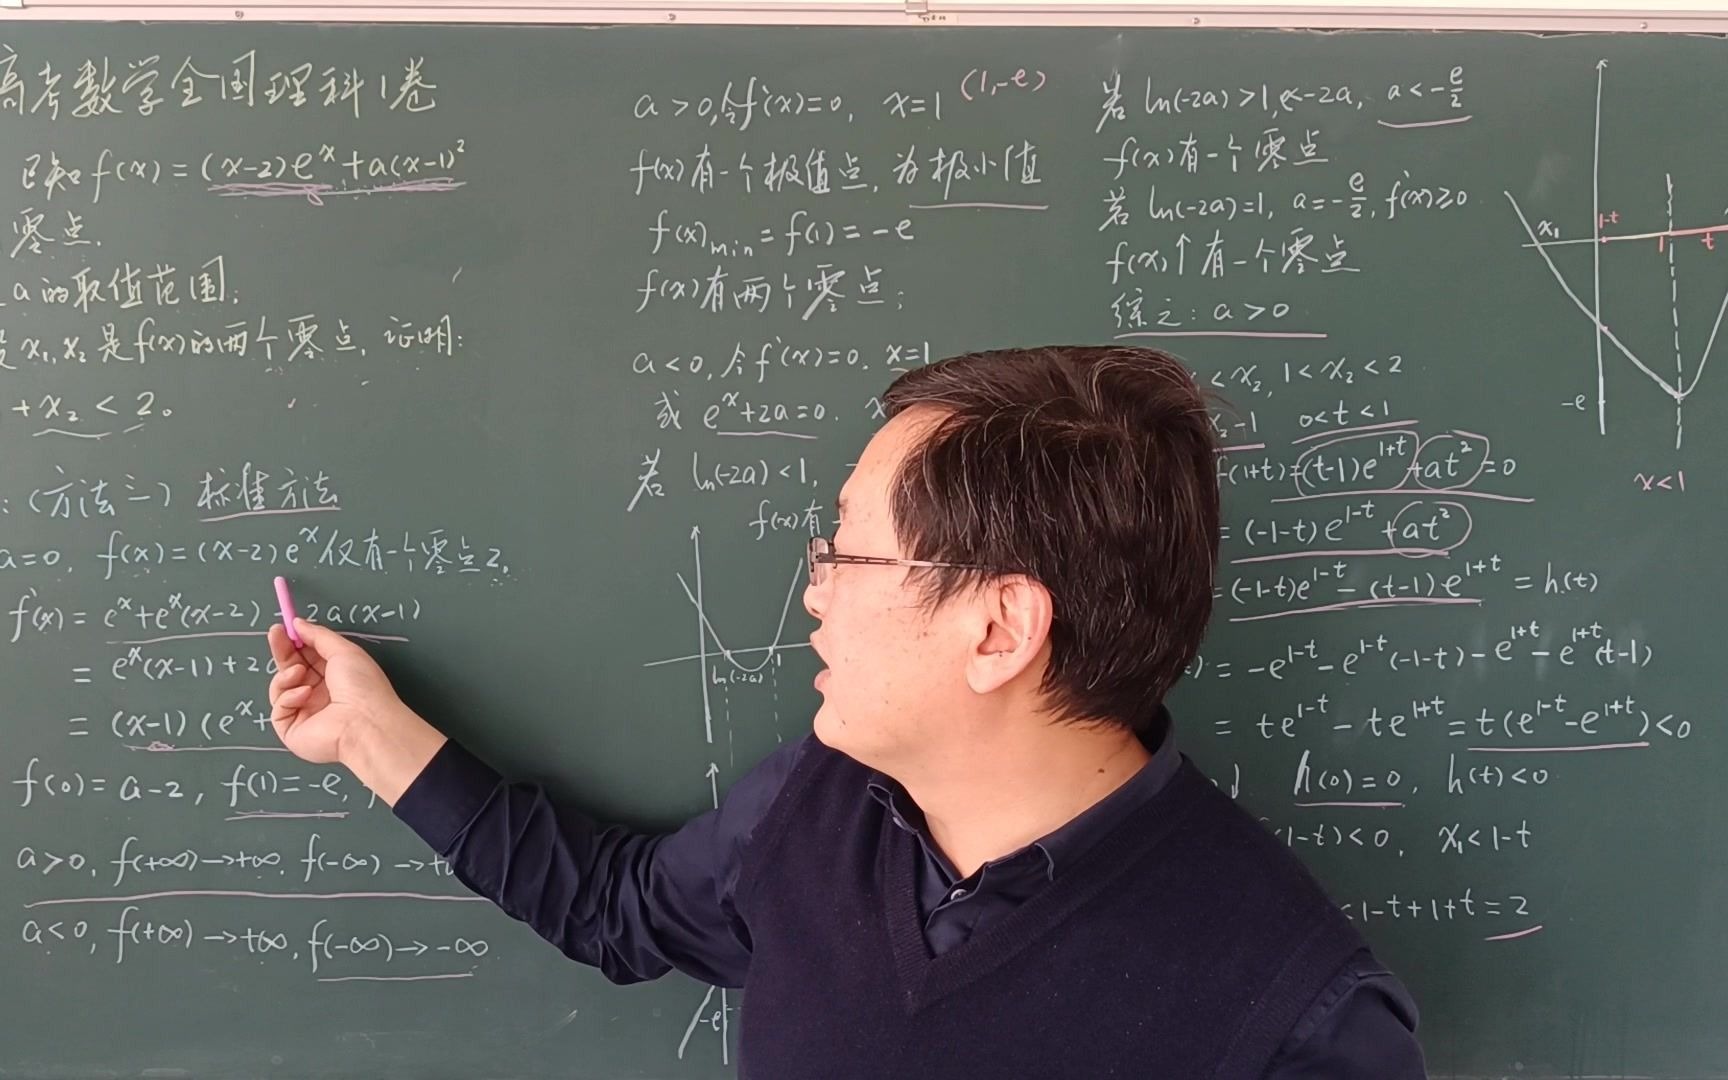 高考数学全国理科1卷
已知f(x)=(x-2)eˣ+a(x-1)²
零点.
a的取值范围;
x₁,x₂是f(x)的两个零点,证明:
+x₂<2。
:(方法三)标准方法
a=0, f(x)=(x-2)eˣ仅有一个零点2。
f'(x)=eˣ+eˣ(x-2) 2a(x-1)
=eˣ(x-1)+2a
=(x-1)(eˣ+
f(0)=a-2, f(1)=-e,
a>0, f(+∞)→+∞, f(-∞)→+
a<0, f(+∞)→+∞, f(-∞)→-∞
a>0,令f'(x)=0, x=1 (1,-e)
f(x)有一个极值点,为极小值
f(x)min=f(1)=-e
f(x)有两个零点;
a<0,令f'(x)=0. x=1
或 eˣ+2a=0. x
若 ln(-2a)<1,
f(x)有
ln(-2a)
1
-e
若 ln(-2a)>1,e<-2a, a<-e/2
f(x)有一个零点
若 ln(-2a)=1, a=-e/2, f'(x)≥0
f(x)↑有一个零点
综之: a>0
<x₂, 1<x₂<2
x₂-1 0<t<1
f(1+t)=(t-1)e¹⁺ᵗ+at²=0
=(-1-t)e¹⁻ᵗ+at²
=(-1-t)e¹⁻ᵗ-(t-1)e¹⁺ᵗ=h(t)
)=-e¹⁻ᵗ-e¹⁻ᵗ(-1-t)-e¹⁺ᵗ-e¹⁺ᵗ(t-1)
=te¹⁻ᵗ-te¹⁺ᵗ=t(e¹⁻ᵗ-e¹⁺ᵗ)<0
↓ h(0)=0, h(t)<0
(1-t)<0, x₁<1-t
<1-t+1+t=2
x₁
1-t
1
t
-e
x<1